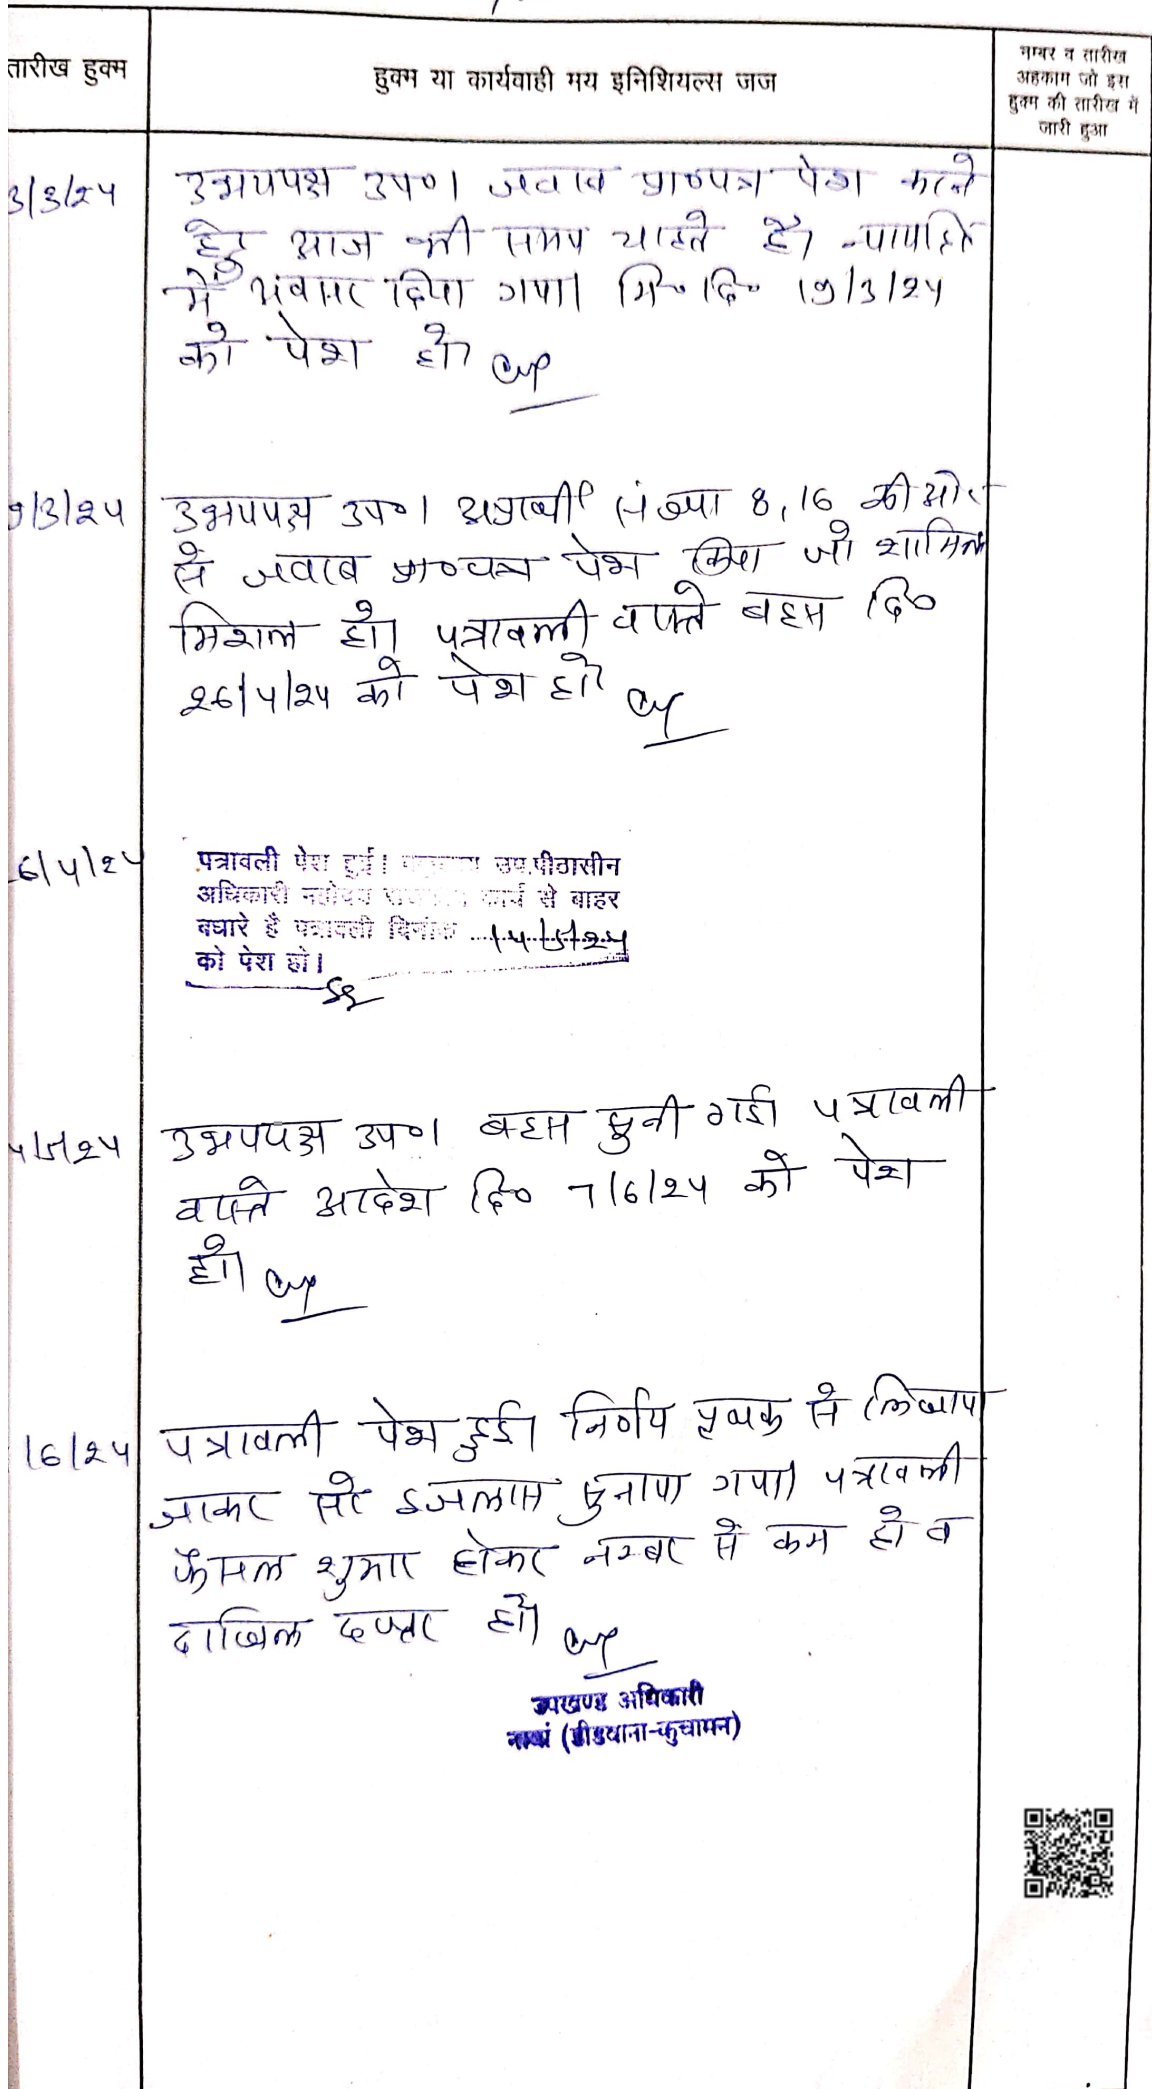 तारीख हुक्म
हुक्म या कार्यवाही मय इनिशियल्स जज
नम्बर व तारीख
अहकाम जो इस
हुक्म की तारीख में
जारी हुआ
3/3/24
उभयपक्ष उप०। जवाब प्रा०पत्र पेश करने
हेतु आज भी समय चाहते है। न्यायहित
में अवसर दिया गया। मि० दि० 19/3/24
को पेश हो।
9/3/24
उभयपक्ष उप०। अप्रार्थी संख्या 8, 16 की ओर
से जवाब प्रा०पत्र पेश किया जो शामिल
मिशल हो। पत्रावली वास्ते बहस दि०
26/4/24 को पेश हो।
6/4/24
पत्रावली पेश हुई। उप.पीठासीन
अधिकारी महोदय कार्य से बाहर
पधारे हैं पत्रावली दिनांक 14/5/24
को पेश हो।
4/5/24
उभयपक्ष उप०। बहस सुनी गई। पत्रावली
वास्ते आदेश दि० 7/6/24 को पेश
हो।
/6/24
पत्रावली पेश हुई। निर्णय पृथक से लिखाया
जाकर सरे इजलास सुनाया गया। पत्रावली
फैसल शुमार होकर नम्बर से कम हो व
दाखिल दफ्तर हो।
उपखण्ड अधिकारी
नावां (डीडवाना-कुचामन)